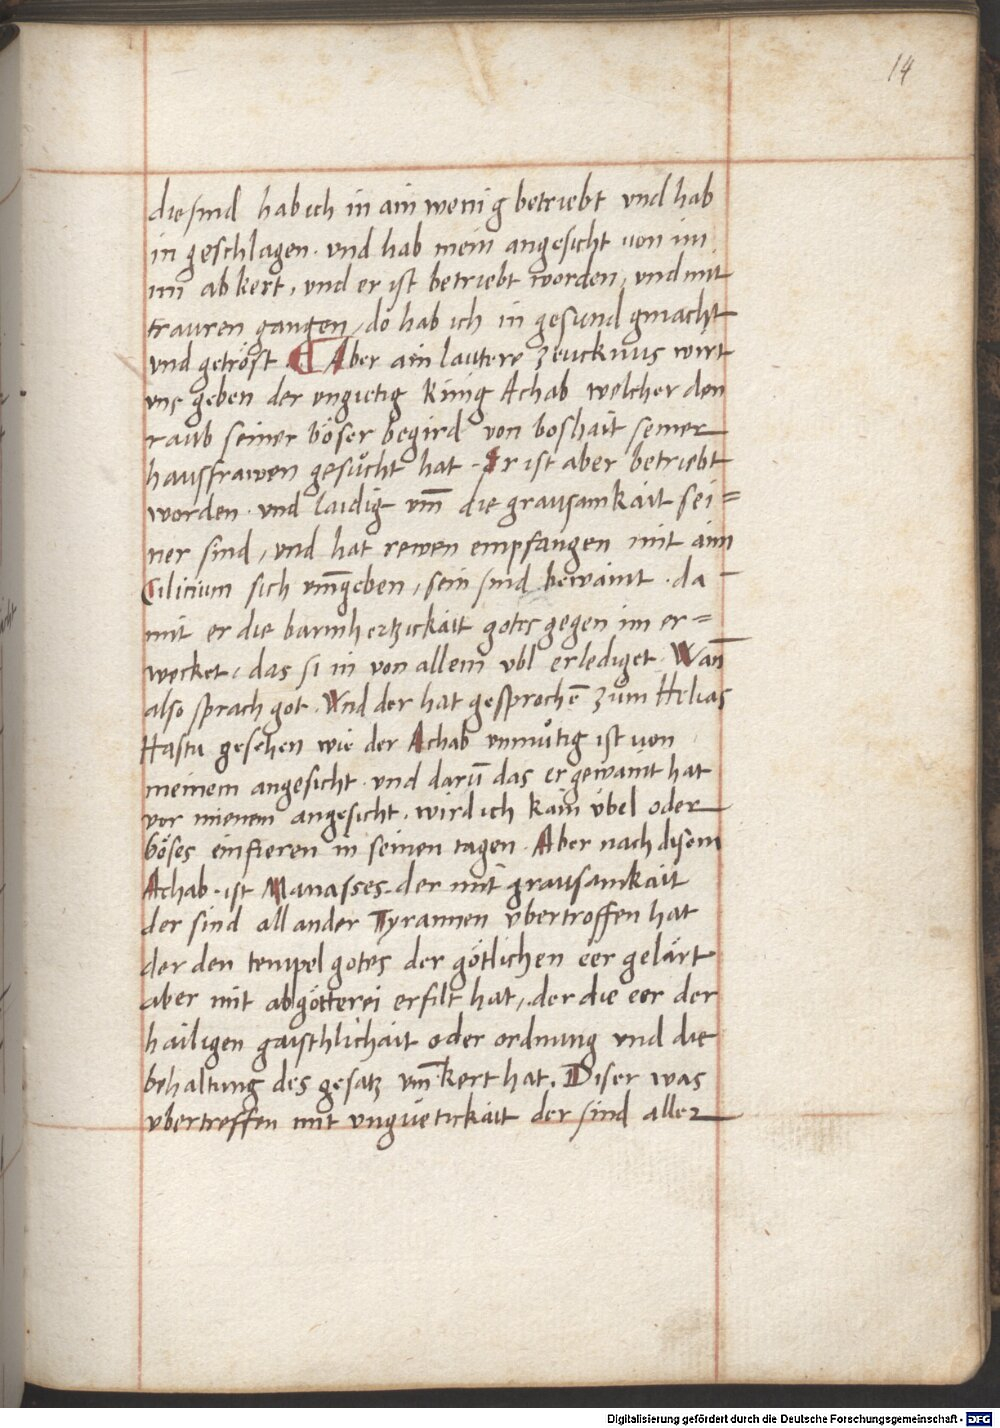 14
die sind hab ich in ain wenig betriebt vnd hab
in geschlagen. vnd hab mein angesicht von im
im ab kert, vnd er ist betriebt worden, vnd mit
trauren gangen, do hab ich in gesund gmacht
vnd getröst. Aber ain lautere zeucknus wirt
vns geben der vngietig king Achab welcher den
raub seiner böser begird von boshait seiner
hausfrawen gesůcht hat. Er ist aber betriebt
worden. vnd laidig vm̄ die grausamkait sei=
ner sind, vnd hat rewen empfangen mit aim
Cilicium sich vm̄geben, sein sind bewaint. da
mit er die barmhertzickait gotes gegen im er=
wecket, das si in von allem vbl erlediget. Wan̄
also sprach got. Vnd der hat gesprochē zům Helias
Hastu gesehen wie der Achab vnmůtig ist von
meinem angesicht. vnd darū das er gewaint hat
vor mienem angesicht. wird ich kain übel oder
böses einfieren in seinen tagen. Aber nach disem
Achab. ist Manasses. der mit grausamkait
der sind all ander Tyrannen vbertroffen hat
der den tempel gotes der götlichen eer gelärt
aber mit abgötterei erfilt hat, der die eer der
hailigen gaisthlichait oder ordnung vnd die
behaltung des gesatz vm̄kert hat. Diser was
vbertreffen mit vngüetickait der sind aller
Digitalisierung gefördert durch die Deutsche Forschungsgemeinschaft - DFG